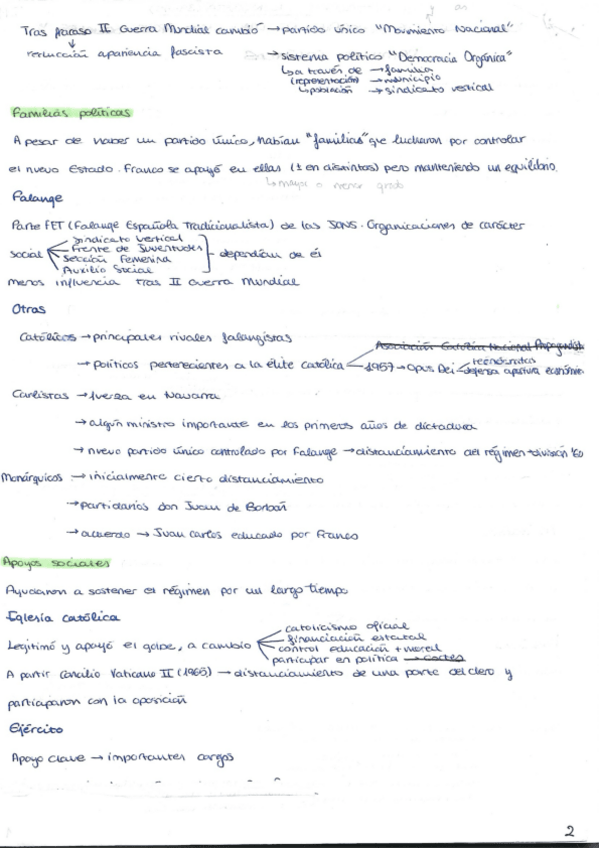 Tras fracaso II Guerra Mundial cambió → partido único "Movimiento Nacional"
reducción apariencia fascista
→ sistema político "Democracia Orgánica"
↳ a través de → familia
(representación) → municipio
↳ población → sindicato vertical
Familias políticas
A pesar de haber un partido único, habían "familias" que lucharon por controlar
el nuevo Estado. Franco se apoyó en ellas (± en distintos) pero manteniendo un equilibrio.
↳ mayor o menor grado
Falange
Parte FET (Falange Española Tradicionalista) de las JONS. Organizaciones de carácter
social
Sindicato vertical
Frente de Juventudes
Sección Femenina
Auxilio Social
dependían de él
menos influencia tras II Guerra Mundial
Otras
Católicos → principales rivales falangistas
Asociación Católica Nacional Propagandist
→ políticos pertenecientes a la élite católica
1957 → Opus Dei
tecnócratas
defensa apertura económic
Carlistas → fuerza en Navarra
→ algún ministro importante en los primeros años de dictadura
→ nuevo partido único controlado por Falange → distanciamiento del régimen + división '60
Monárquicos → inicialmente cierto distanciamiento
→ partidarios don Juan de Borbón
→ acuerdo → Juan Carlos educado por Franco
Apoyos sociales
Ayudaron a sostener el régimen por un largo tiempo
Iglesia católica
Legitimó y apoyó el golpe, a cambio
catolicismo oficial
financiación estatal
control educación + moral
participar en política → Cortes
A partir Concilio Vaticano II (1965) → distanciamiento de una parte del clero y
participaron con la oposición
Ejército
Apoyo clave → importantes cargos
2